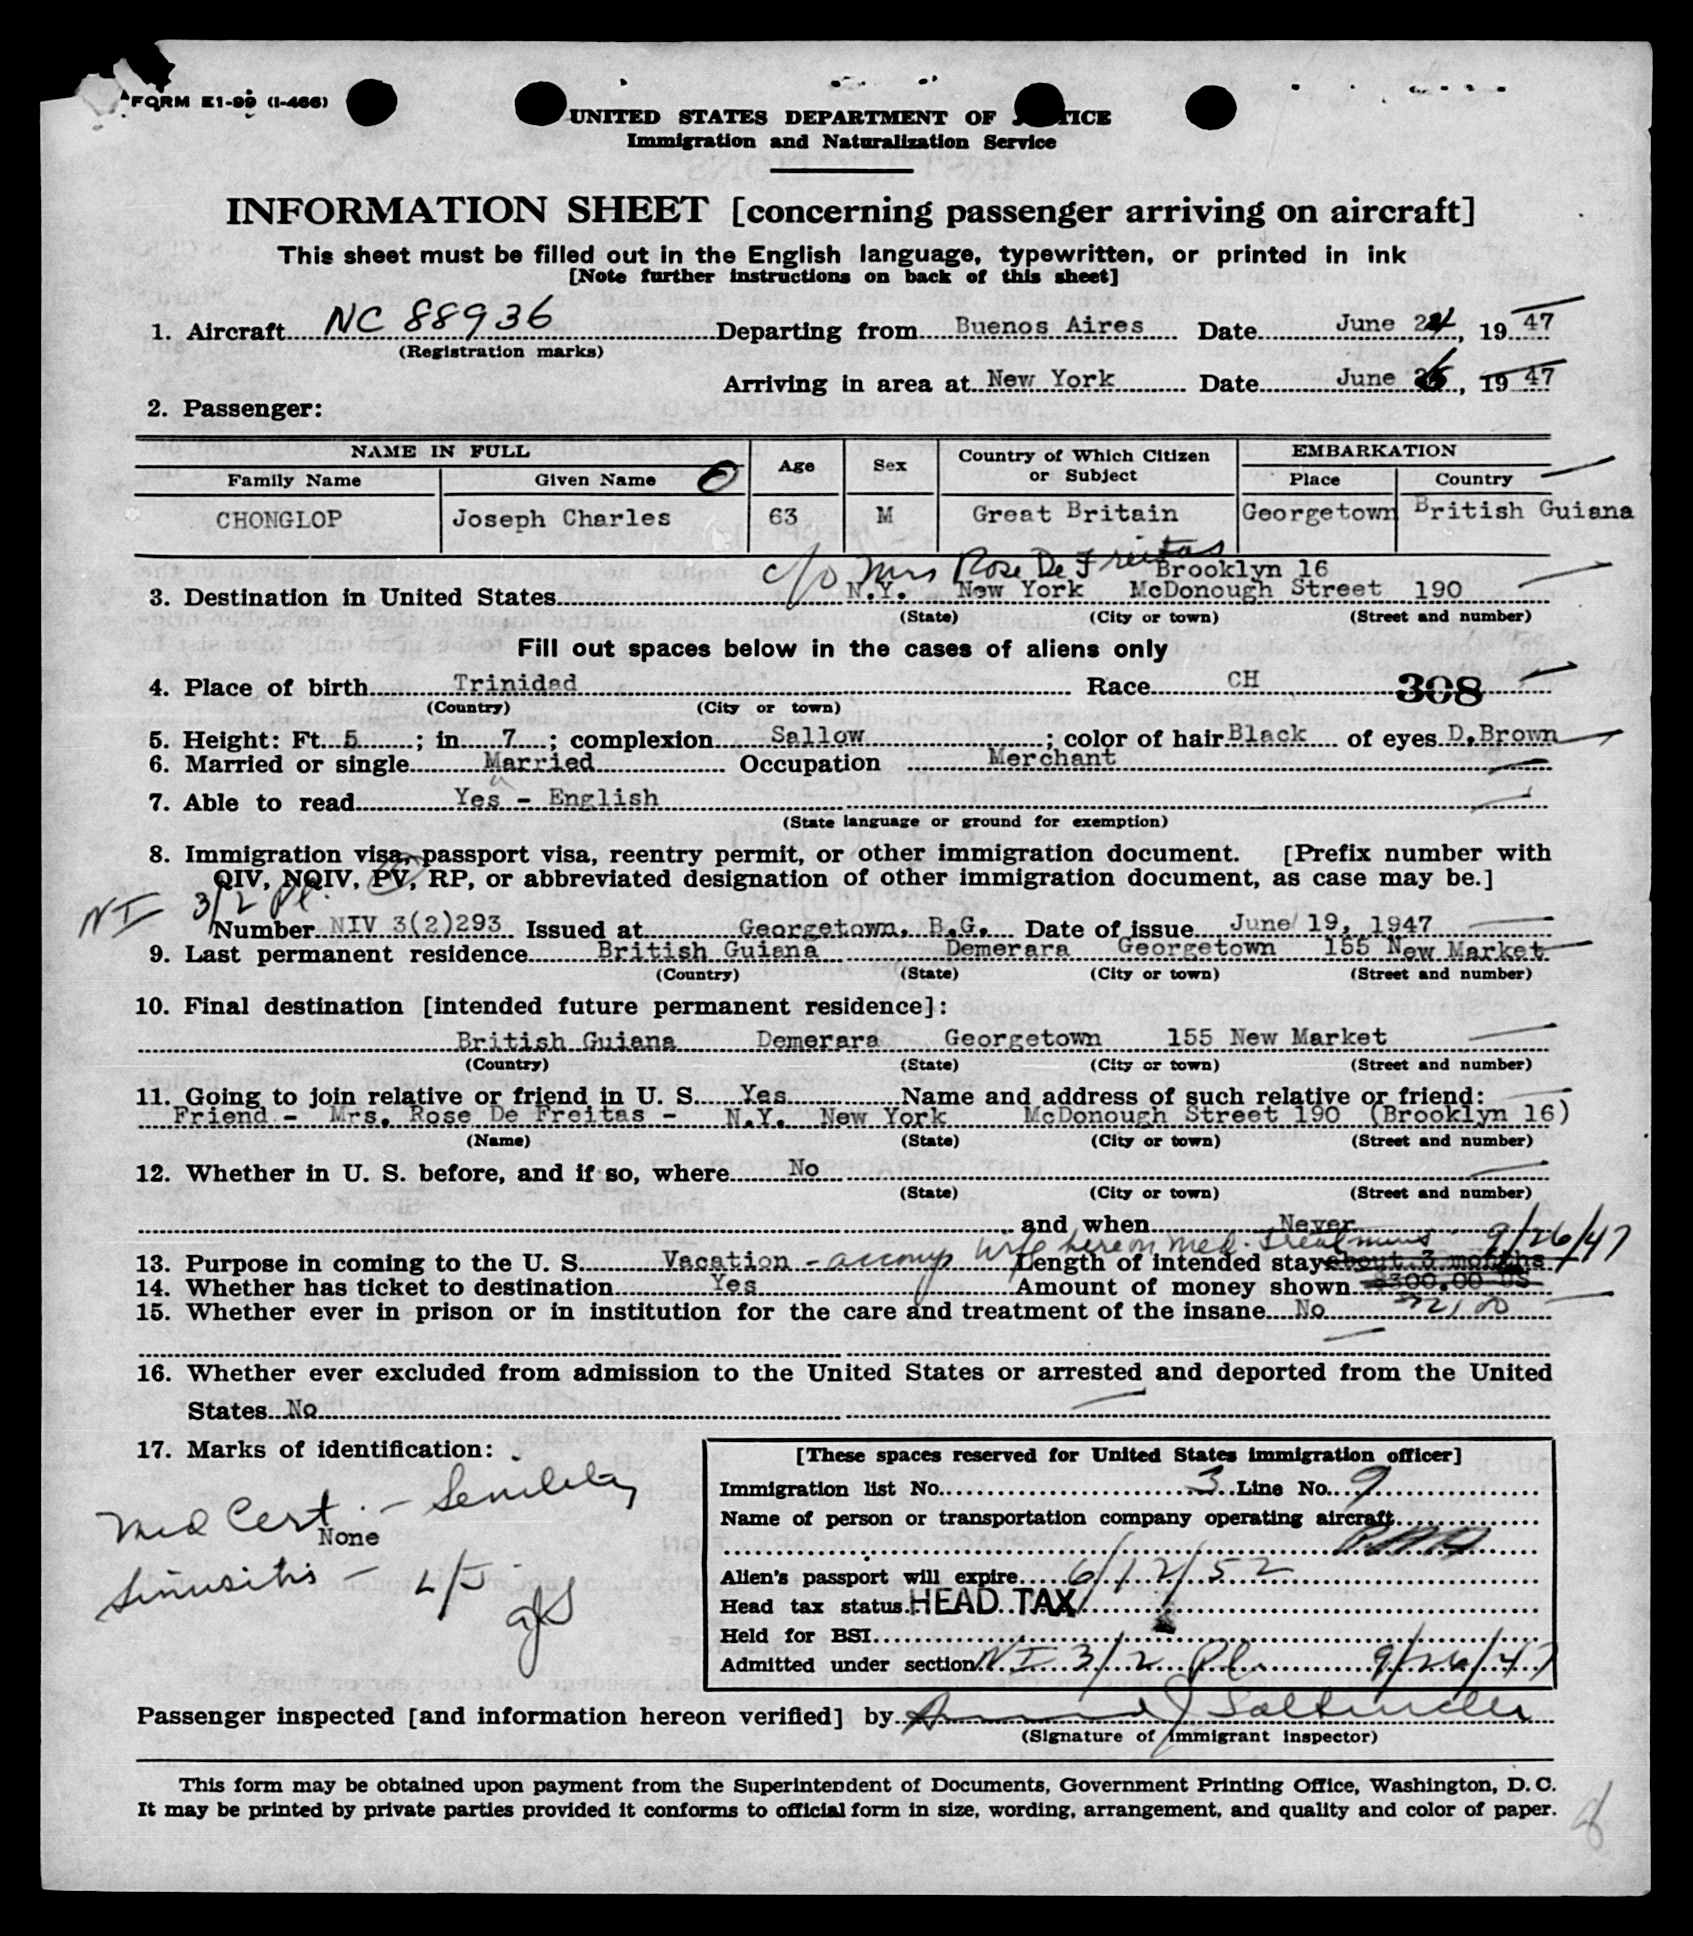 FORM E1-99 (I-466)
UNITED STATES DEPARTMENT OF J TICE
Immigration and Naturalization Service
INFORMATION SHEET [concerning passenger arriving on aircraft]
This sheet must be filled out in the English language, typewritten, or printed in ink
[Note further instructions on back of this sheet]
1. Aircraft NC 88936 Departing from Buenos Aires Date June 24, 19 47
(Registration marks)
Arriving in area at New York Date June 26, 19 47
2. Passenger:
NAME IN FULL Age Sex Country of Which Citizen or Subject EMBARKATION
Family Name Given Name Place Country
CHONGLOP Joseph Charles 63 M Great Britain Georgetown British Guiana
c/o Mrs Rose De Freitas
Brooklyn 16
3. Destination in United States N.Y. New York McDonough Street 190
(State) (City or town) (Street and number)
Fill out spaces below in the cases of aliens only
4. Place of birth Trinidad Race CH 308
(Country) (City or town)
5. Height: Ft. 5 ; in. 7 ; complexion Sallow ; color of hair Black of eyes D.Brown
6. Married or single Married Occupation Merchant
7. Able to read Yes - English
(State language or ground for exemption)
8. Immigration visa, passport visa, reentry permit, or other immigration document. [Prefix number with
QIV, NQIV, PV, RP, or abbreviated designation of other immigration document, as case may be.]
NI 3/2 Pl.
Number NIV 3(2)293 Issued at Georgetown, B.G. Date of issue June 19, 1947
9. Last permanent residence British Guiana Demerara Georgetown 155 New Market
(Country) (State) (City or town) (Street and number)
10. Final destination [intended future permanent residence]:
British Guiana Demerara Georgetown 155 New Market
(Country) (State) (City or town) (Street and number)
11. Going to join relative or friend in U. S. Yes Name and address of such relative or friend:
Friend - Mrs. Rose De Freitas - N.Y. New York McDonough Street 190 (Brooklyn 16)
(Name) (State) (City or town) (Street and number)
12. Whether in U. S. before, and if so, where No
(State) (City or town) (Street and number)
and when Never
13. Purpose in coming to the U. S. Vacation - accomp wife here on med. treatment Length of intended stay about 3 months 9/26/47
14. Whether has ticket to destination Yes Amount of money shown $300.00 US
15. Whether ever in prison or in institution for the care and treatment of the insane No
16. Whether ever excluded from admission to the United States or arrested and deported from the United
States No
17. Marks of identification:
Med Cert. - Senility
None
Sinusitis -
[These spaces reserved for United States immigration officer]
Immigration list No. 3 Line No. 9
Name of person or transportation company operating aircraft
Alien's passport will expire 6/12/52
Head tax status HEAD TAX
Held for BSI
Admitted under section NI 3/2 Pl. 9/26/47
Passenger inspected [and information hereon verified] by
(Signature of immigrant inspector)
This form may be obtained upon payment from the Superintendent of Documents, Government Printing Office, Washington, D. C.
It may be printed by private parties provided it conforms to official form in size, wording, arrangement, and quality and color of paper.